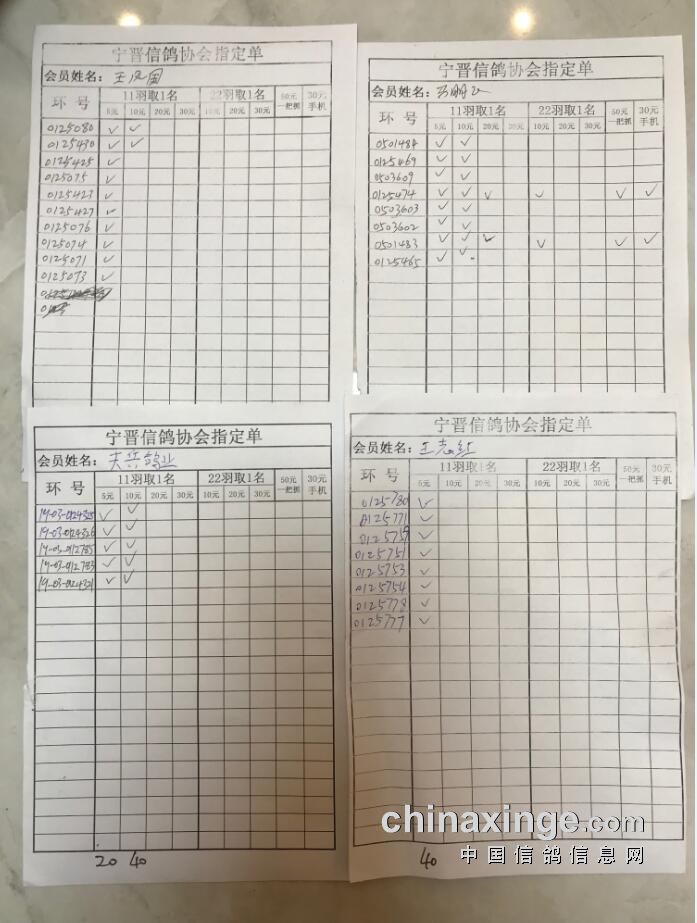 宁晋信鸽协会指定单
会员姓名：王凤国
环 号 11羽取1名 22羽取1名 50元一把抓 30元手机
5元 10元 20元 30元 10元 20元 30元
0125080 ✓ ✓
0125430 ✓ ✓
0125425 ✓
0125075 ✓
0125423 ✓
0125427 ✓
0125076 ✓
0125074 ✓
0125071 ✓
0125073 ✓
宁晋信鸽协会指定单
会员姓名：
环 号 11羽取1名 22羽取1名 50元一把抓 30元手机
5元 10元 20元 30元 10元 20元 30元
0501484 ✓ ✓
0125469 ✓ ✓
0503609 ✓ ✓
0125474 ✓ ✓ ✓ ✓ ✓ ✓
0503603 ✓ ✓
0503602 ✓ ✓
0501483 ✓ ✓ ✓ ✓ ✓ ✓
0125465 ✓ ✓
宁晋信鸽协会指定单
会员姓名：鸽业
环 号 11羽取1名 22羽取1名 50元一把抓 30元手机
5元 10元 20元 30元 10元 20元 30元
19-03-0124325 ✓ ✓
19-03-0124326 ✓ ✓
19-03-012785 ✓ ✓
19-03-012783 ✓ ✓
19-03-0124321 ✓ ✓
20 40
宁晋信鸽协会指定单
会员姓名：王志红
环 号 11羽取1名 22羽取1名 50元一把抓 30元手机
5元 10元 20元 30元 10元 20元 30元
0125780 ✓
0125771 ✓
0125759 ✓
0125751 ✓
0125753 ✓
0125754 ✓
0125778 ✓
0125777 ✓
40
chinaxinge.com
中国信鸽信息网